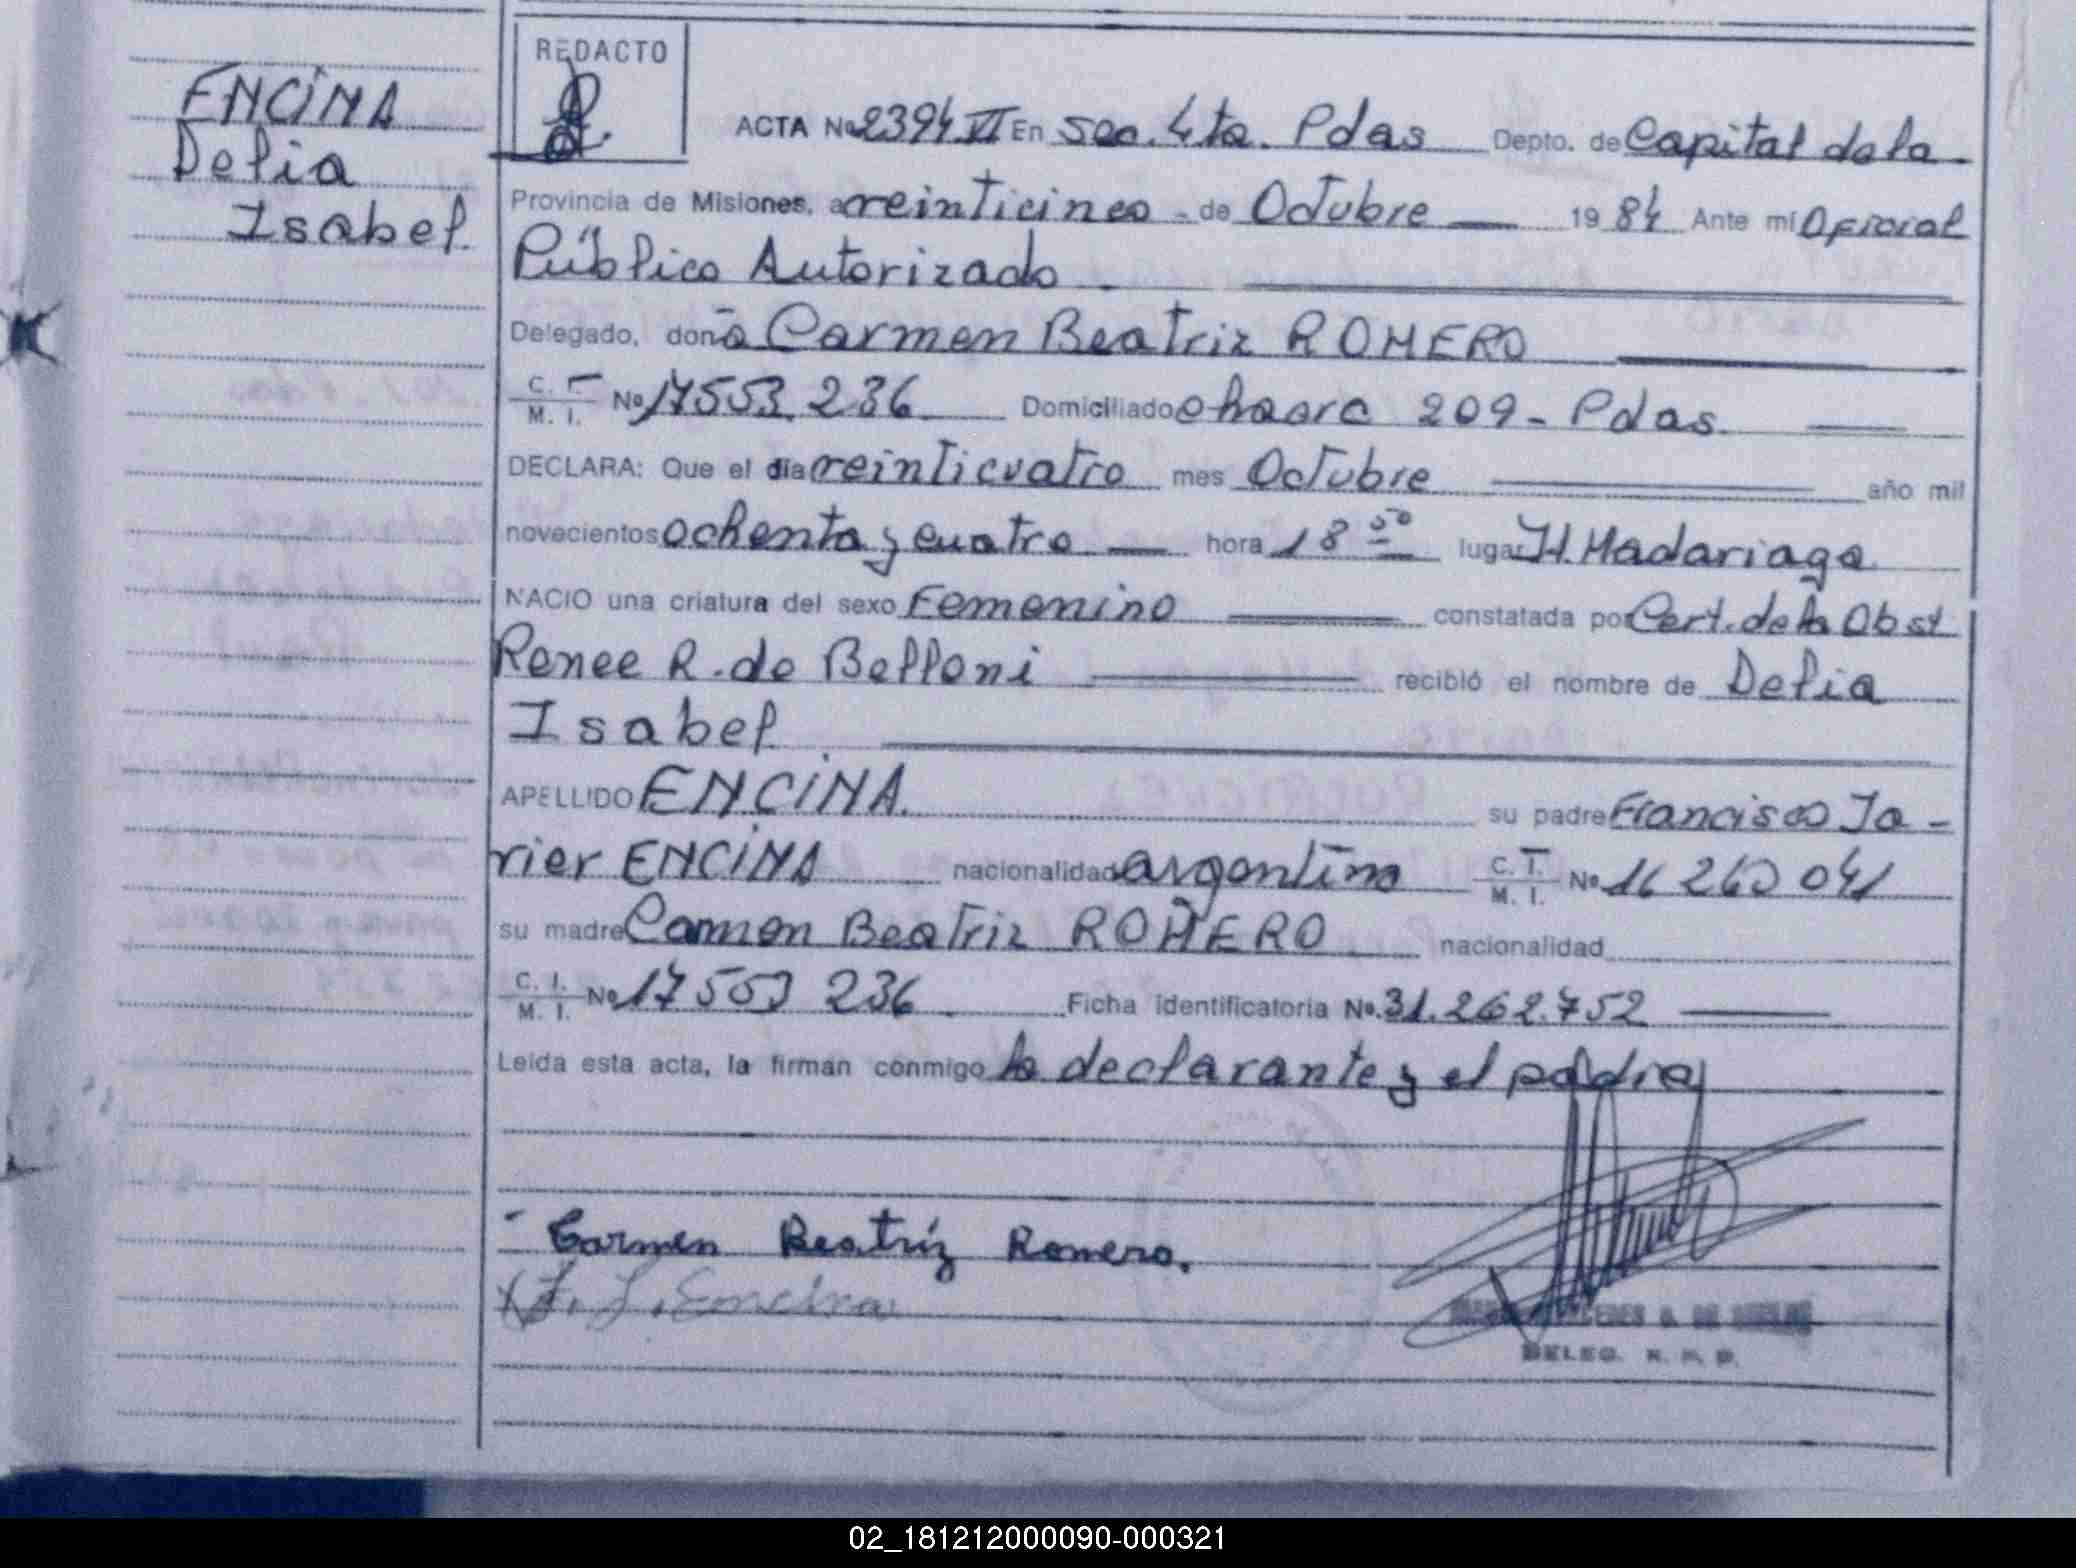 ENCINA
Delia
Isabel
REDACTO
ACTA No 2394 VI En sec. 4ta. Pdas Depto. de Capital de la
Provincia de Misiones, a veinticinco - de Octubre 19 84 Ante mí Oficial
Público Autorizado
Delegado, doña Carmen Beatriz ROMERO
C. I. M. I. No 17553.236 Domiciliado chacra 209 - Pdas.
DECLARA: Que el día veinticuatro mes Octubre año mil
novecientos ochenta y cuatro hora 18 50 lugar H. Madariaga
NACIO una criatura del sexo Femenino constatada por Cert. de la Obst
Renee R. de Belloni recibió el nombre de Delia
Isabel
APELLIDO ENCINA su padre Francisco Ja-
vier ENCINA nacionalidad argentina C. I. M. I. No 16 262 041
su madre Carmen Beatriz ROMERO nacionalidad
C. I. M. I. No 17553 236 Ficha identificatoria No. 31.262.752
Leída esta acta, la firman conmigo la declarante y el padre
Carmen Beatriz Romero.
F. J. Encina
DELEG. R. P. P.
02_181212000090-000321